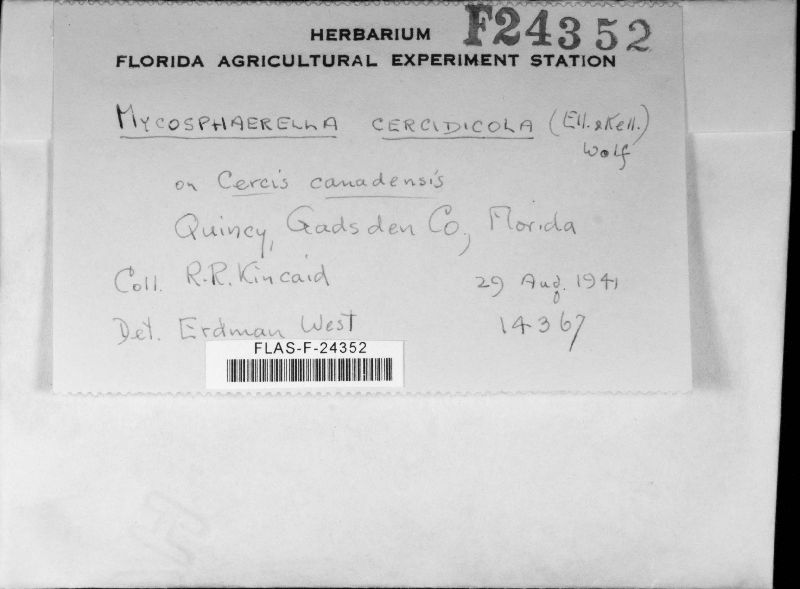 HERBARIUM F24352
FLORIDA AGRICULTURAL EXPERIMENT STATION
MYCOSPHAERELLA CERCIDICOLA (Ell. & Kell.)
Wolf
on Cercis canadensis
Quincy, Gadsden Co., Florida
Coll. R.R. Kincaid 29 Aug. 1941
Det. Erdman West 14367
FLAS-F-24352